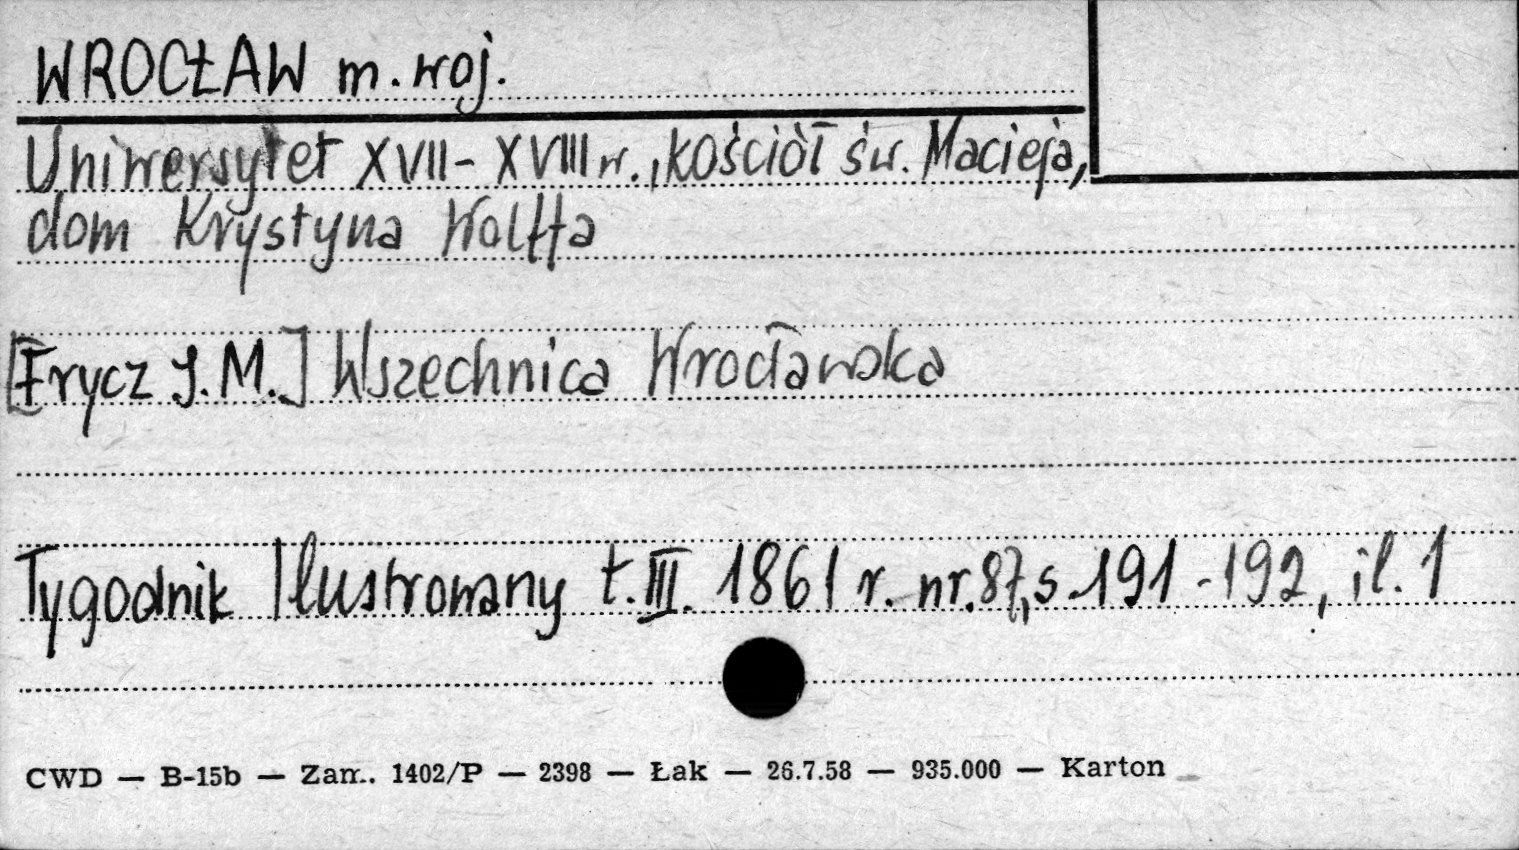 WROCŁAW m. woj.
Uniwersytet XVII - XVIII w., kościół św. Macieja,
dom Krystyna Wolffa
[Frycz J. M.] Wszechnica Wrocławska
Tygodnik Ilustrowany t. III. 1861 r. nr. 87, s. 191 - 192, il. 1
CWD — B-15b — Zam. 1402/P — 2398 — Łak — 26.7.58 — 935.000 — Karton